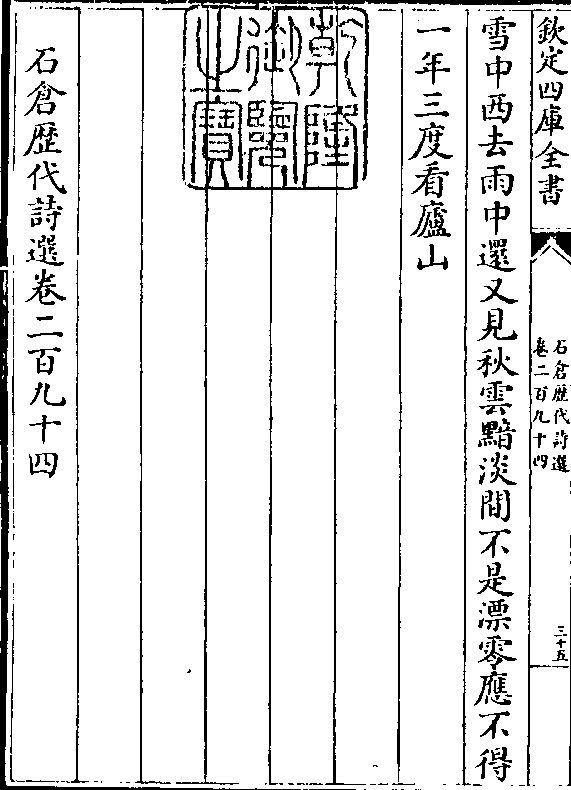 欽定四庫全書
石倉歴代詩選
卷二百九十四
三十五
雪中西去雨中還又見秋雲黯淡間不是漂零應不得
一年三度看廬山
乾隆御覽之寶
石倉歴代詩選卷二百九十四